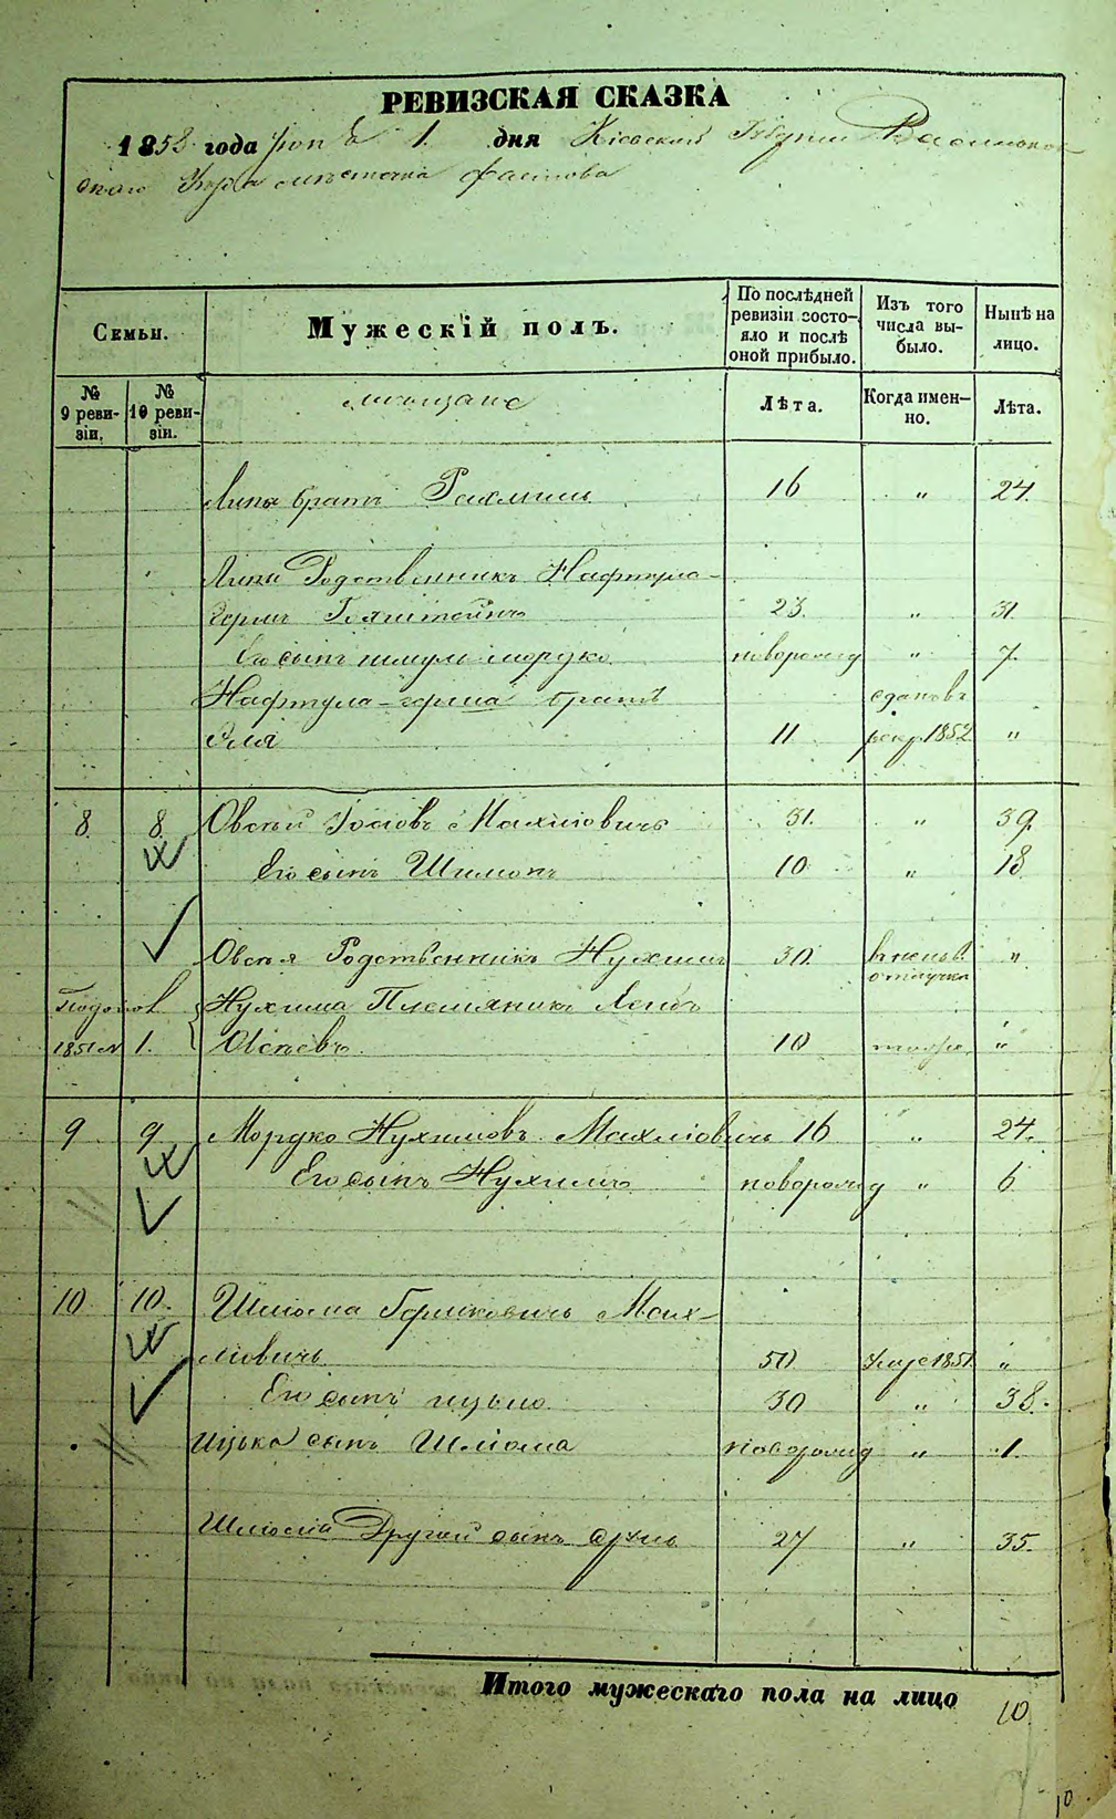 РЕВИЗСКАЯ СКАЗКА
1858 года 1. дня Кіевской Губерніи Васильков-
скаго Уезда местечка Фастова
Семьи.
Мужескій полъ.
По послѣдней ревизіи состо-яло и послѣ оной прибыло.
Изъ того числа вы-было.
Нынѣ на лицо.
№ 9 реви-зіи.
№ 10 реви-зіи.
мещане
Лѣта.
Когда имен-но.
Лѣта.
братъ Рахмиль 16 " 24.
Родственникъ Нафтула-
Гершъ 23. " 31.
Его сынъ Шмуль Мордко новорожд " 7.
Нафтула-Герша братъ
Эля 11 рекр. 1852 "
8. 8. Овсей Іосіовъ Махліовичъ 31. " 39.
Его сынъ Шимонъ 10 " 18
Овсея Родственникъ Нухимъ 30. отлучке "
Нухима Племянникъ Лейбъ
1851 № 1. Овсеевъ 10 "
9 9 Мордко Нухимовъ Махліовичъ 16 " 24.
Его сынъ Нухимъ новорожд " 6
10. 10. Шліома Гершковичъ Мах-
ліовичъ 50 1851 "
Его сынъ Ицько 30 " 38.
Ицька сынъ Шліома новорожд " 1.
Шліомы Другой сынъ 27 " 35.
Итого мужескаго пола на лицо 10.
10